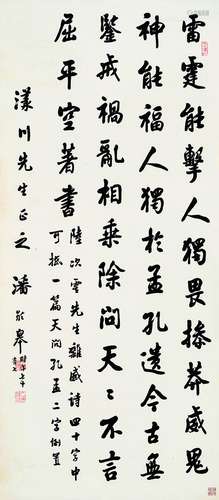 雷霆能擊人獨畏操莽威鬼
神能福人獨於孟孔遺今古無
鑒戒禍亂相乘除問天〻不言
屈平空著書
陸次雲先生雜感詩四十字中
可抵一篇天問孔孟二字倒置
漾川先生正之
潘齡皋
時年七十